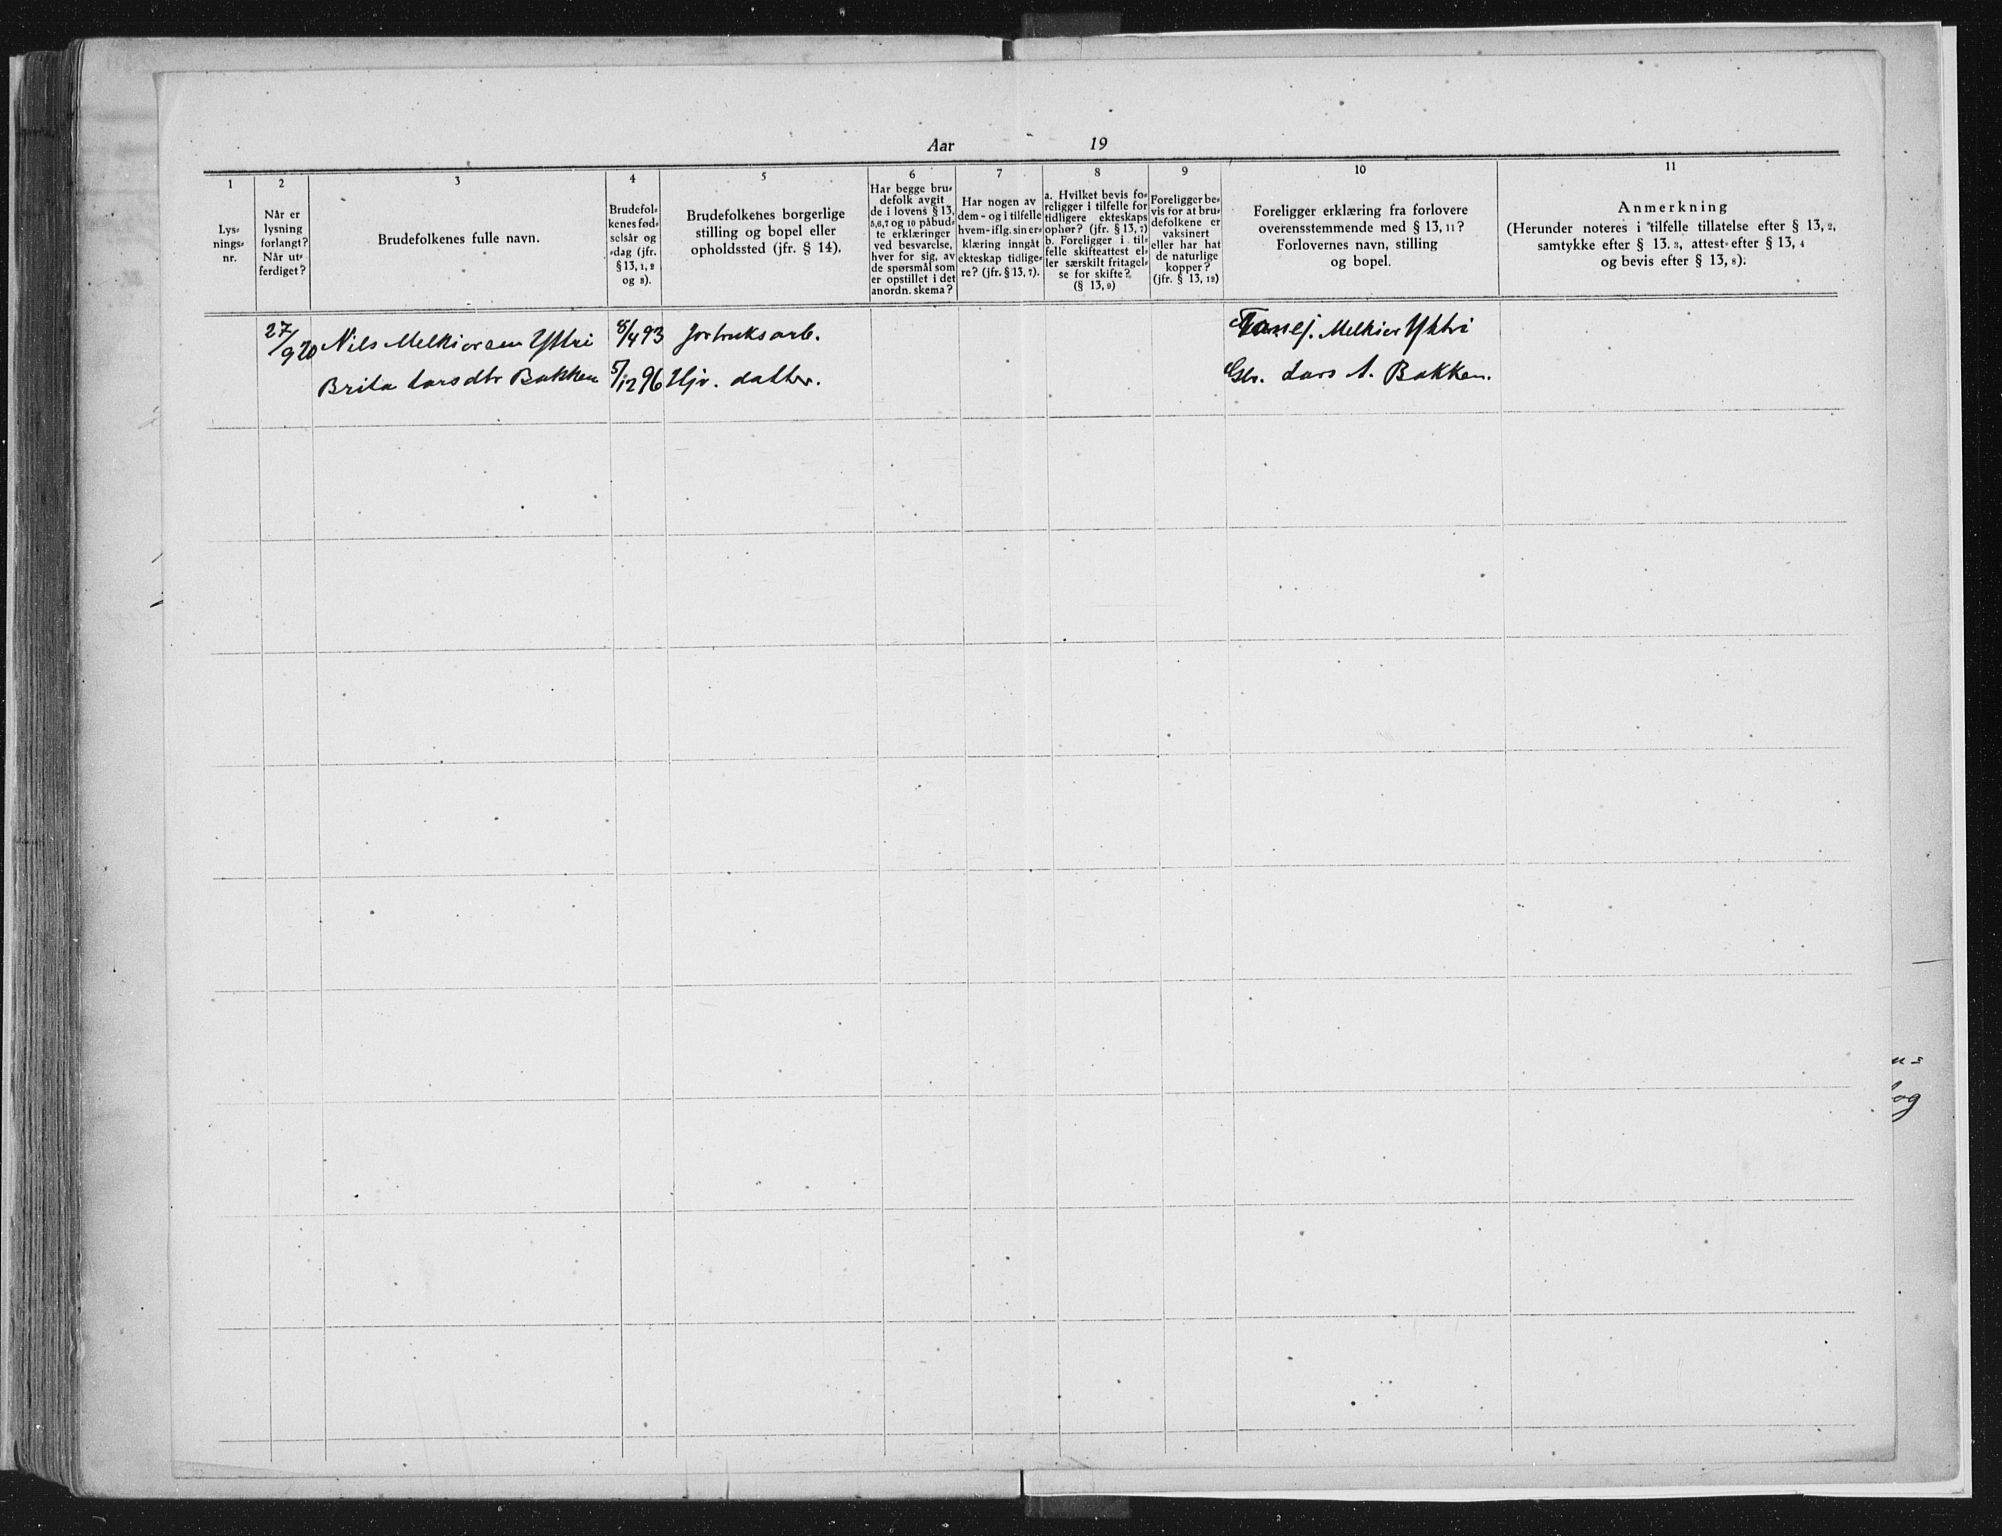 Aar 19
1 2 3 4 5 6 7 8 9 10 11
Lys-
nings-
nr.
Når er
lysning
forlangt?
Når ut-
ferdiget?
Brudefolkenes fulle navn.
Brudefol-
kenes fød-
selsår og
-dag (jfr.
§ 13, 1, 2
og 8).
Brudefolkenes borgerlige
stilling og bopel eller
opholdssted (jfr. § 14).
Har begge bru-
defolk avgit
de i lovens § 13,
5,6,7 og 10 påbud-
te erklæringer
ved besvarelse,
hver for sig, av
de spørsmål som
er opstillet i det
anordn. skema?
Har nogen av
dem - og i tilfelle
hvem - iflg. sin er-
klæring inngåt
ekteskap tidlige-
re? (jfr. § 13, 7).
a. Hvilket bevis fo-
religger i tilfelle for
tidligere ekteskaps
ophør? (jfr. § 13, 7)
b. Foreligger i til-
felle skifteattest el-
ler særskilt fritagel-
se for skifte?
(§ 13, 9)
Foreligger be-
vis for at bru-
defolkene er
vaksinert
eller har hat
de naturlige
kopper?
(jfr. § 13, 12)
Foreligger erklæring fra forlovere
overensstemmende med § 13, 11?
Forlovernes navn, stilling
og bopel.
Anmerkning
(Herunder noteres i tilfelle tillatelse efter § 13, 2,
samtykke efter § 13. 3, attest efter § 13, 4
og bevis efter § 13, 8).
27/9 20 Nils Melkiorsen Yttri 8/4 93 Jorbruksarb. Melkior Yttri
Brita Larsdtr Bakken 5/12 96 Hjv. datter. Gbr. Lars A. Bakken.
og